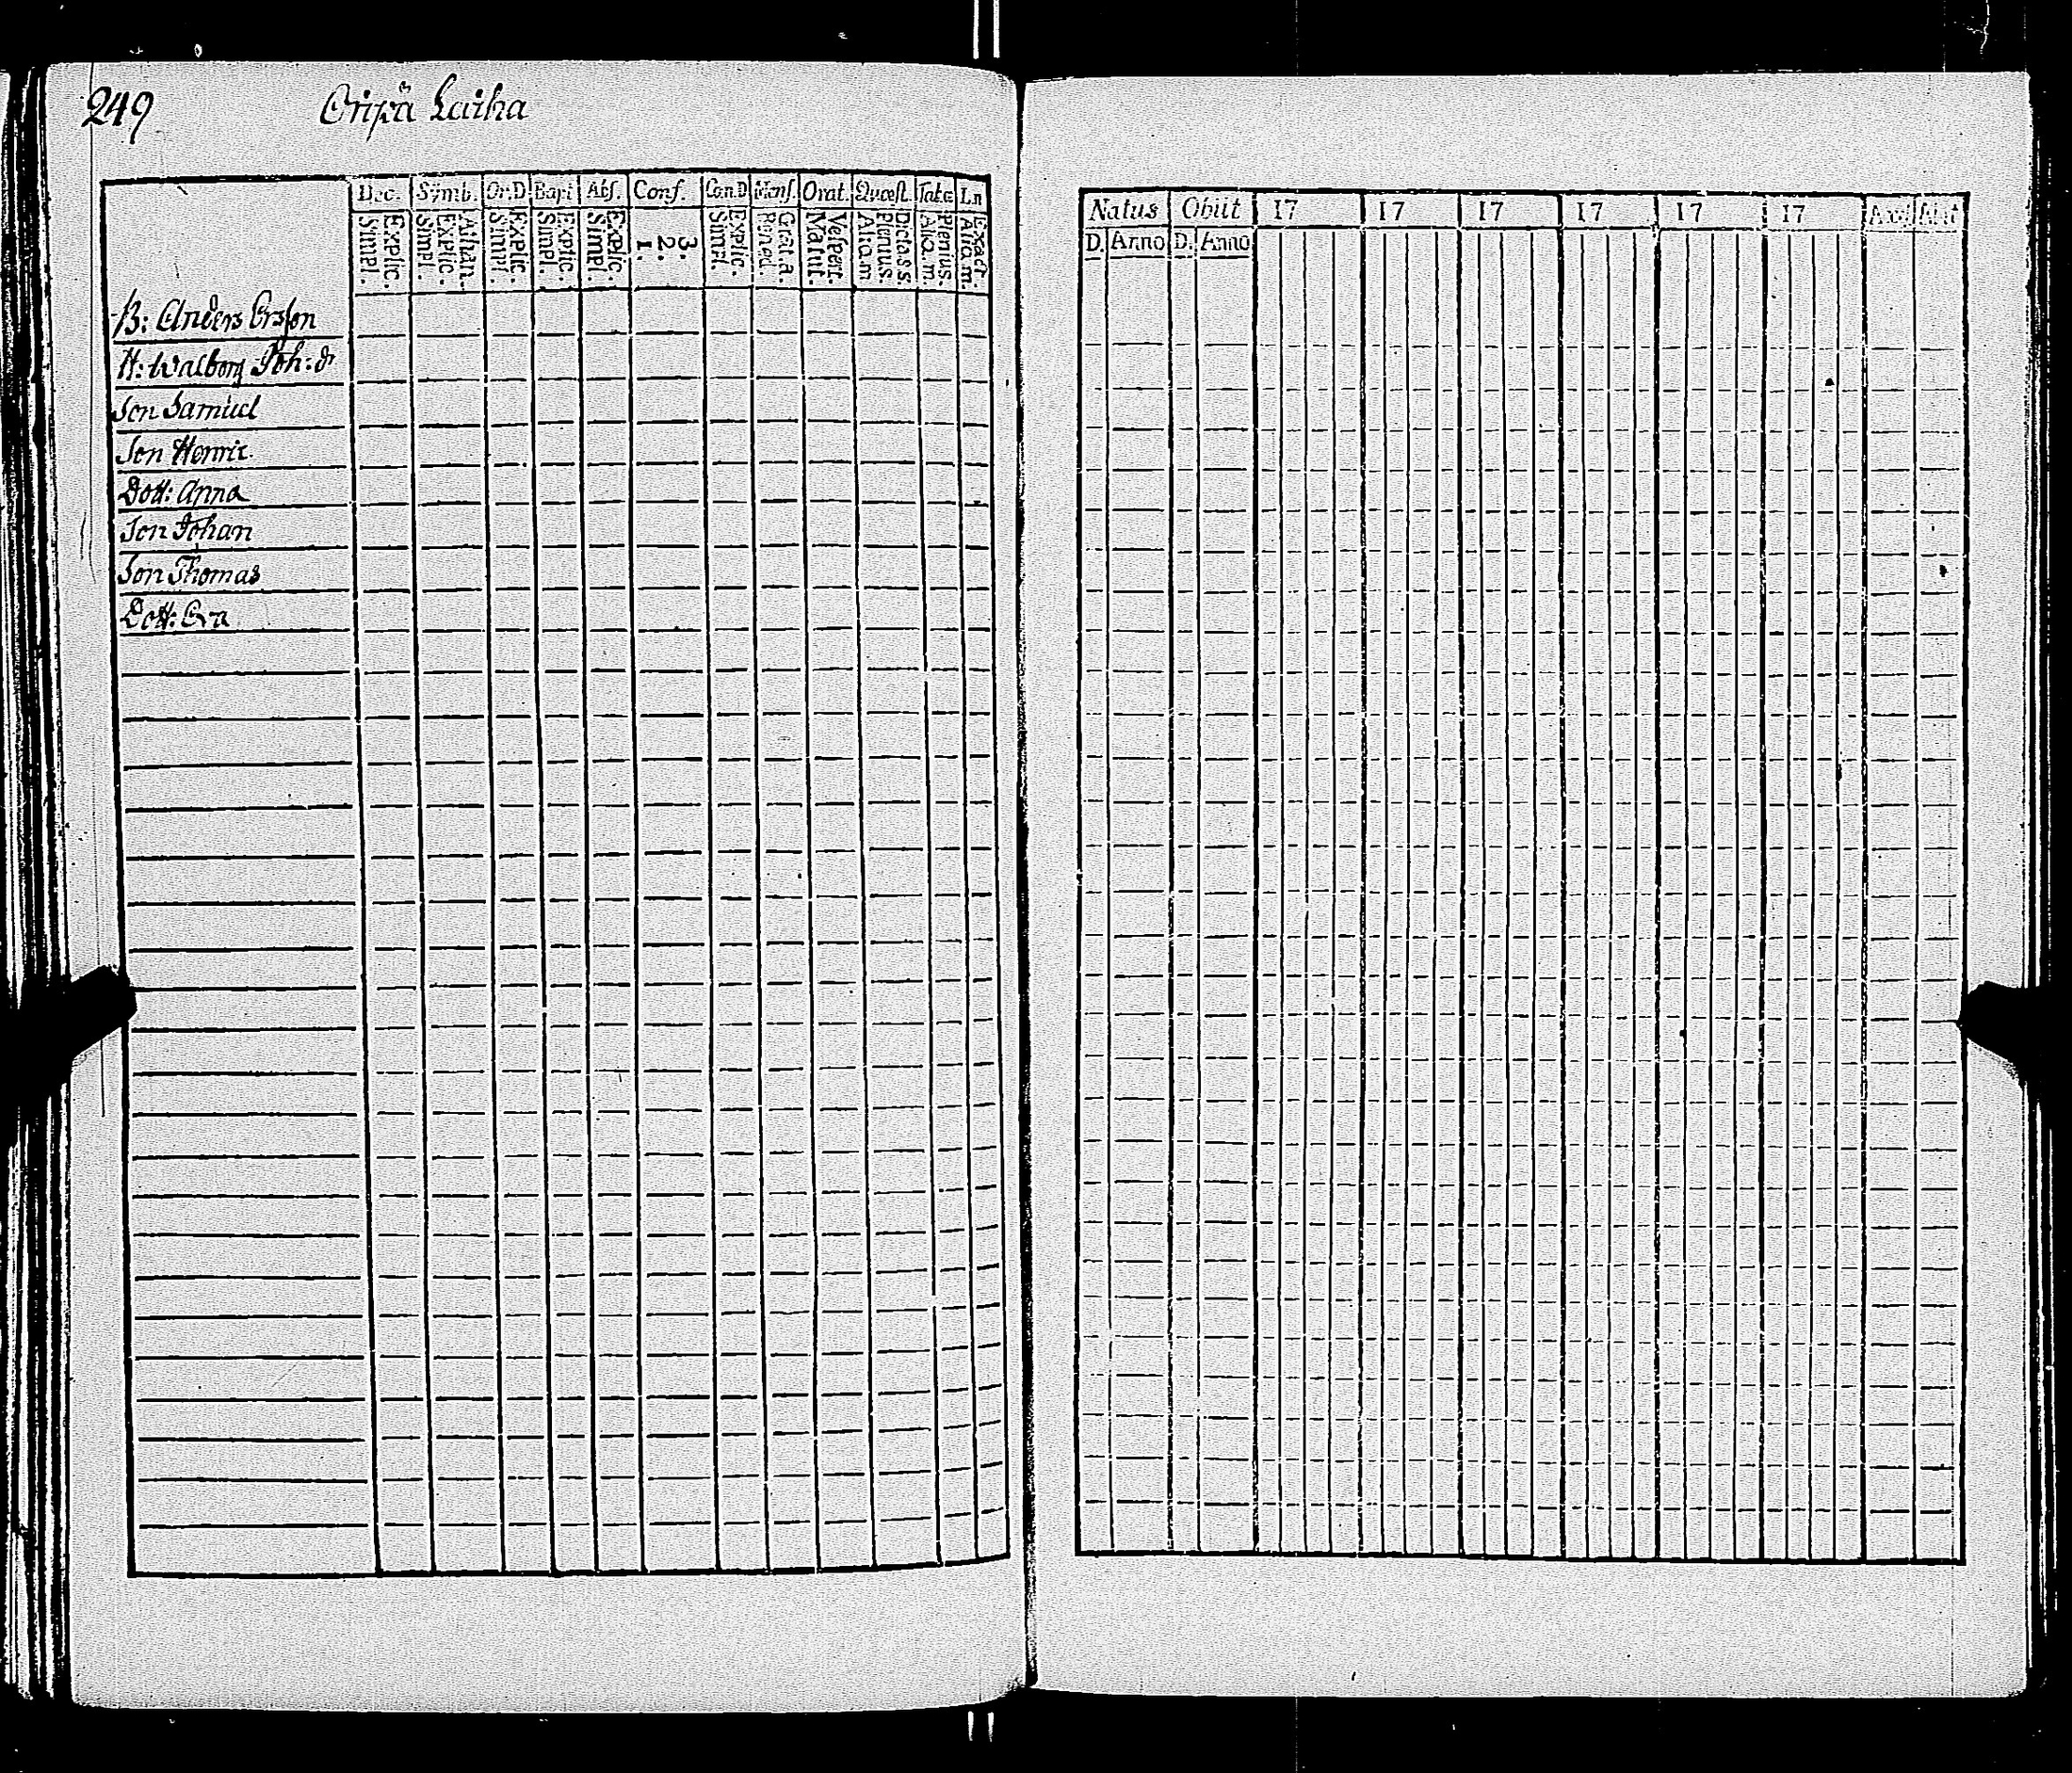 249 Oripä Laiha
Dec. Symb. Or.D Bapt Abs. Conf. Can.D Mens. Orat. Quæst. Tab.œ Ln
Explic. Simpl. Athan. Explic. Simpl. Explic. Simpl. Explic. Simpl. Explic. Simpl. 3. 2. 1. Explic. Simpl. Grat. a. Bened. Vespert. Matut. Dictass. Plenius. Aliq. m. Plenius. Aliq. m. Exact. Aliq. m.
B: Anders Ersson
H: Walborg Joh:dr
Son Samuel
Son Henric
Dott: Anna
Son Johan
Son Thomas
Dott: Eva
Natus Obiit 17 17 17 17 17 17
D. Anno D. Anno